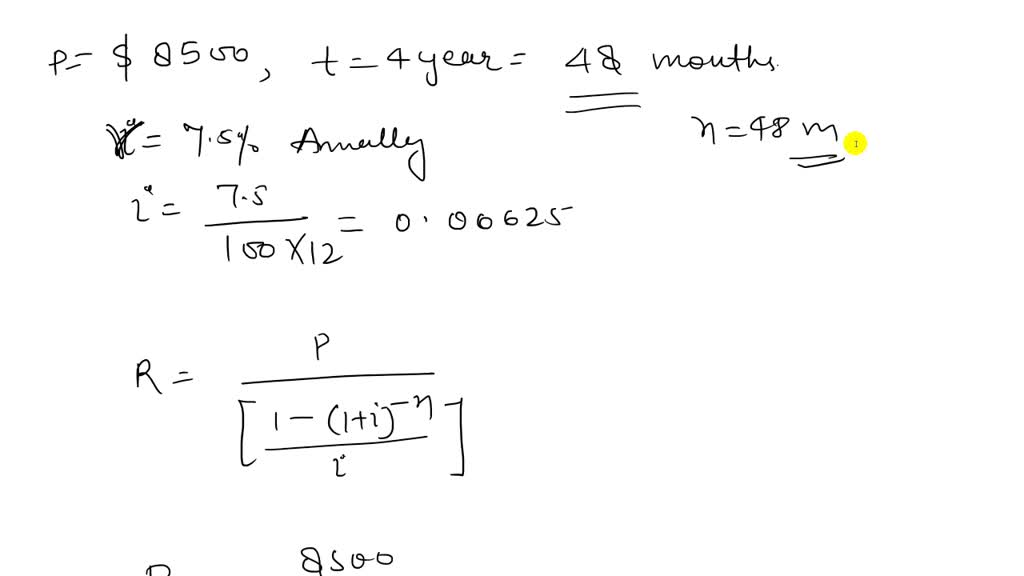 P= $ 8500, t=4 year= 48 months.
i= 7.5% Annally
n=48 m
i= 7.5 / 100×12 = 0.00625
R= P / [ 1-(1+i)^-n / i ]
8500